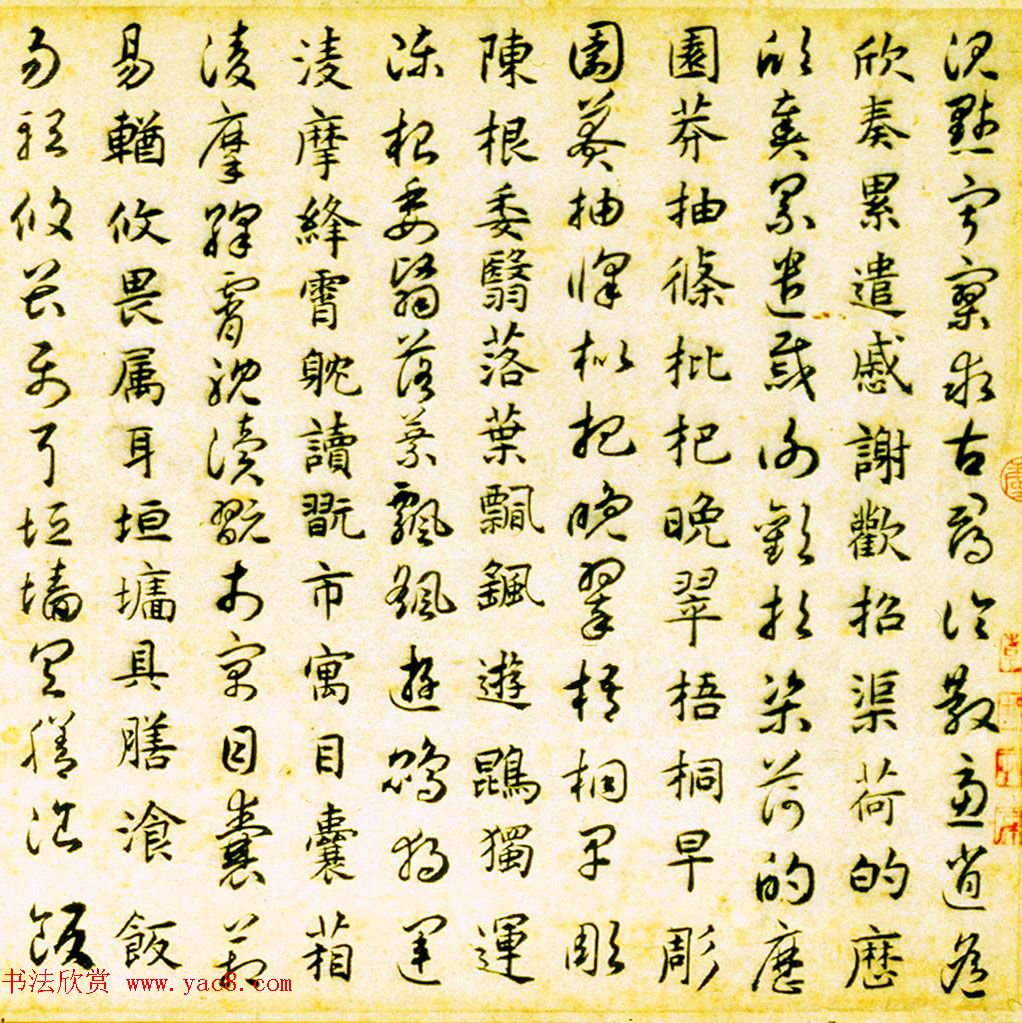 沉默寂寥求古尋論散慮逍遙
欣奏累遣慼謝歡招渠荷的歷
欣奏累遣慼謝歡招渠荷的歷
園莽抽條枇杷晚翠梧桐早彫
園莽抽條枇杷晚翠梧桐早彫
陳根委翳落葉飄颻遊鵾獨運
陳根委翳落葉飄颻遊鵾獨運
淩摩絳霄躭讀翫市寓目囊箱
淩摩絳霄躭讀翫市寓目囊箱
易輶攸畏属耳垣墻具膳湌飯
易輶攸畏属耳垣墻具膳湌飯
书法欣赏 www.yac8.com